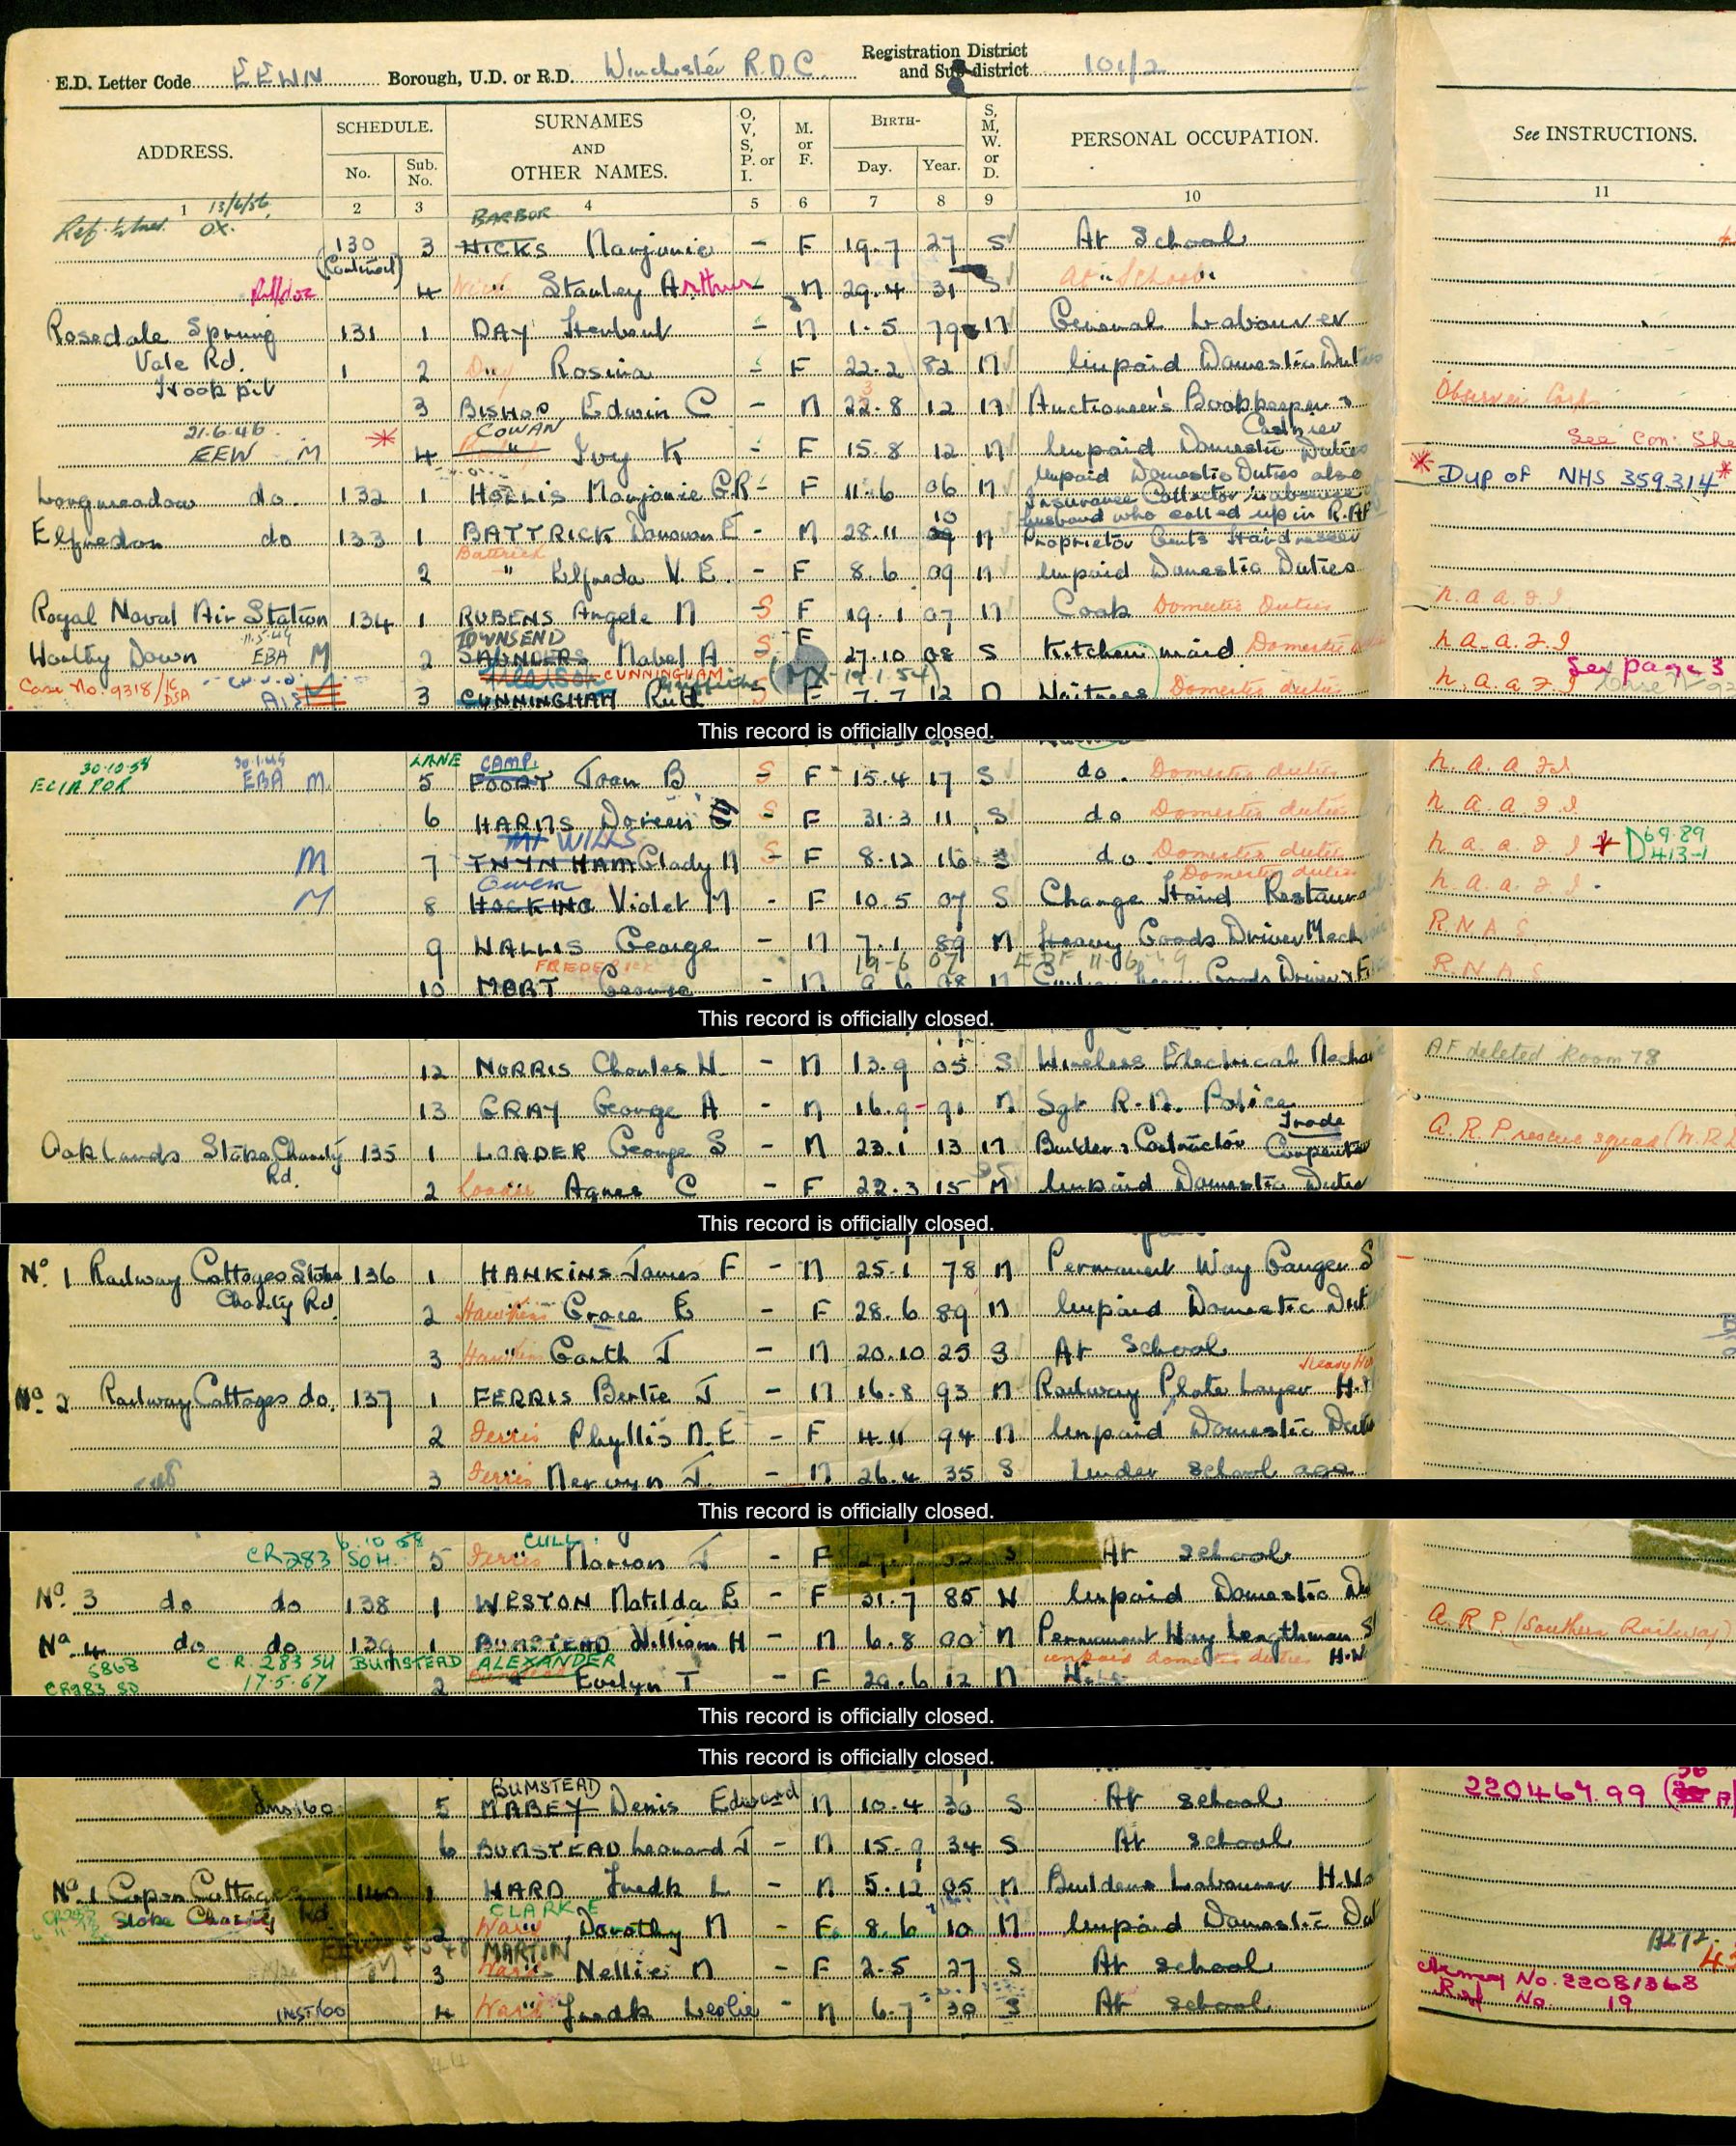 E.D. Letter Code EEWN Borough, U.D. or R.D. Winchester R.D.C. Registration District and Sub-district 101/2
ADDRESS. SCHEDULE. No. Sub. No. SURNAMES AND OTHER NAMES. O, V, S, P. or I. M. or F. BIRTH- Day. Year. S, M, W. or D. PERSONAL OCCUPATION. See INSTRUCTIONS.
1 2 3 4 5 6 7 8 9 10 11
13/6/56
OX.
BARBOR
130 (Continued) 3 HICKS Marjorie - F 19.7 27 S At School
4 " Stanley Arthur - M 29.4 31 S At " School "
Rosedale Spring 131 1 DAY Herbert - M 1.5 79 M General Labourer
Vale Rd. 2 Day " Rosina - F 22.2 82 M Unpaid Domestic Duties
Hookpit 3 BISHOP Edwin C - M 22.8 12 M Auctioneer's Bookkeeper & Cashier Observer Corps
21.6.46 COWAN
EEW M * 4 " Ivy K - F 15.8 12 M Unpaid Domestic Duties See Con: She
* DUP OF NHS 359314 *
Longmeadow do. 132 1 HOLLIS Marjorie G.R - F 11.6 06 M Unpaid Domestic Duties also
Insurance Collector in absence
husband who called up in R.AF
Elfredon do 133 1 BATTRICK Donovan E - M 28.11 10 M Proprietor Gents Hairdresser
Battrick
2 " Elfreda V. E. - F 8.6 09 M Unpaid Domestic Duties
Royal Naval Air Station 134 1 RUBENS Angele M S F 19.1 07 M Cook Domestic Duties N.a.a.f.I
TOWNSEND
Worthy Down EBA M 2 SAUNDERS Mabel A S F 27.10 08 S Kitchen maid Domestic N.a.a.f.I
See page 3
CUNNINGHAM (MX-19.1.54)
Case No. 9318/ 3 CUNNINGHAM Ruth S F 7.7 12 D Waitress Domestic duties N.a.a.f.I
This record is officially closed.
30.10.58 30.1.45 LANE CAMP.
EBA M 5 FOORT Joan B S F 15.4 17 S do. Domestic duties N.a.a.f.I
6 HARMS Doreen S F 31.3 11 S do Domestic duties N.a.a.f.I.
WILKS
M 7 TWYNHAM Glady M S F 8.12 16 S do. Domestic duties N.a.a.f.I
Owen Domestic duties
M 8 HOCKING Violet M - F 10.5 07 S Change Hand Restaurant N.a.a.f.I.
9 WALLIS George - M 7.1 89 M Heavy Goods Driver Mech R.N.A.S
FREDERICK 19-6 07 EBF 11-6-49
10 MORT George - M 9.6 08 M Goods Driver & R.N.A.S
This record is officially closed.
12 NORRIS Charles W. - M 13.9 05 S Wireless Electrical Mechanic AF deleted Room 78
13 GRAY George A - M 16.9 91 M Sgt R.N. Police
Trade
Oaklands Stoke Charity 135 1 LOADER George S - M 23.1 13 M Builder & Contractor Carpenter A.R.P rescue squad (W.R.
Rd. 2 Loader " Agnes C - F 22.3 15 M Unpaid Domestic Duties
This record is officially closed.
No. 1 Railway Cottages Stoke 136 1 HAWKINS James F - M 25.1 78 M Permanent Way Ganger S
Charity Rd. 2 Hawkins " Grace E - F 28.6 89 M Unpaid Domestic Duties
3 Hawkins " Garth J - M 20.10 25 S At School
No. 2 Railway Cottages do. 137 1 FERRIS Bertie J - M 16.8 93 M Railway Plate Layer H.
2 Ferris " Phyllis M.E - F 4.11 94 M Unpaid Domestic Duties
3 Ferris " Mervyn J. - M 26.4 35 S Under school age
This record is officially closed.
6.10.58 CULL.
CR283 SOH. 5 Ferris " Marion J - F S At school
No. 3 do do 138 1 WESTON Matilda E - F 31.7 85 W Unpaid Domestic Du
No. 4 do do 139 1 BUMSTEAD William H - M 6.8 00 M Permanent Way Lengthman S A.R.P. (Southern Railway)
S863 C.R. 283 SU BUMSTEAD ALEXANDER unpaid domestic duties H.W
CR283 SD 17.5.67 2 Evelyn T - F 29.6 12 M
This record is officially closed.
This record is officially closed.
BUMSTEAD
5 MABEY Denis Edward M 10.4 30 S At school 220469.99
6 BUMSTEAD Leonard J - M 15.9 34 S At school
No. 1 Capon Cottages 140 1 WARD Fredk L - M 5.12 05 M Builders Labourer H.Wo
CLARKE
Stoke Charity Rd 2 Ward " Dorothy M - F 8.6 10 M Unpaid Domestic Dut
MARTIN
3 Ward " Nellie M - F 2.5 27 S At school
Army No. 22081368
INST160 4 Ward " Fredk Leslie - M 6.7 30 S At school
Ref No. 19